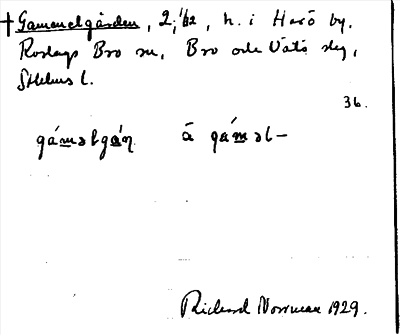 †Gammelgården, 2, 1/82, h. i Harö by,
Roslags Bro sn, Bro och Vätö slg,
Sthlms l.
36.
gám̲əlgåṇ å gám̲əl–
Rickard Norrman 1929.